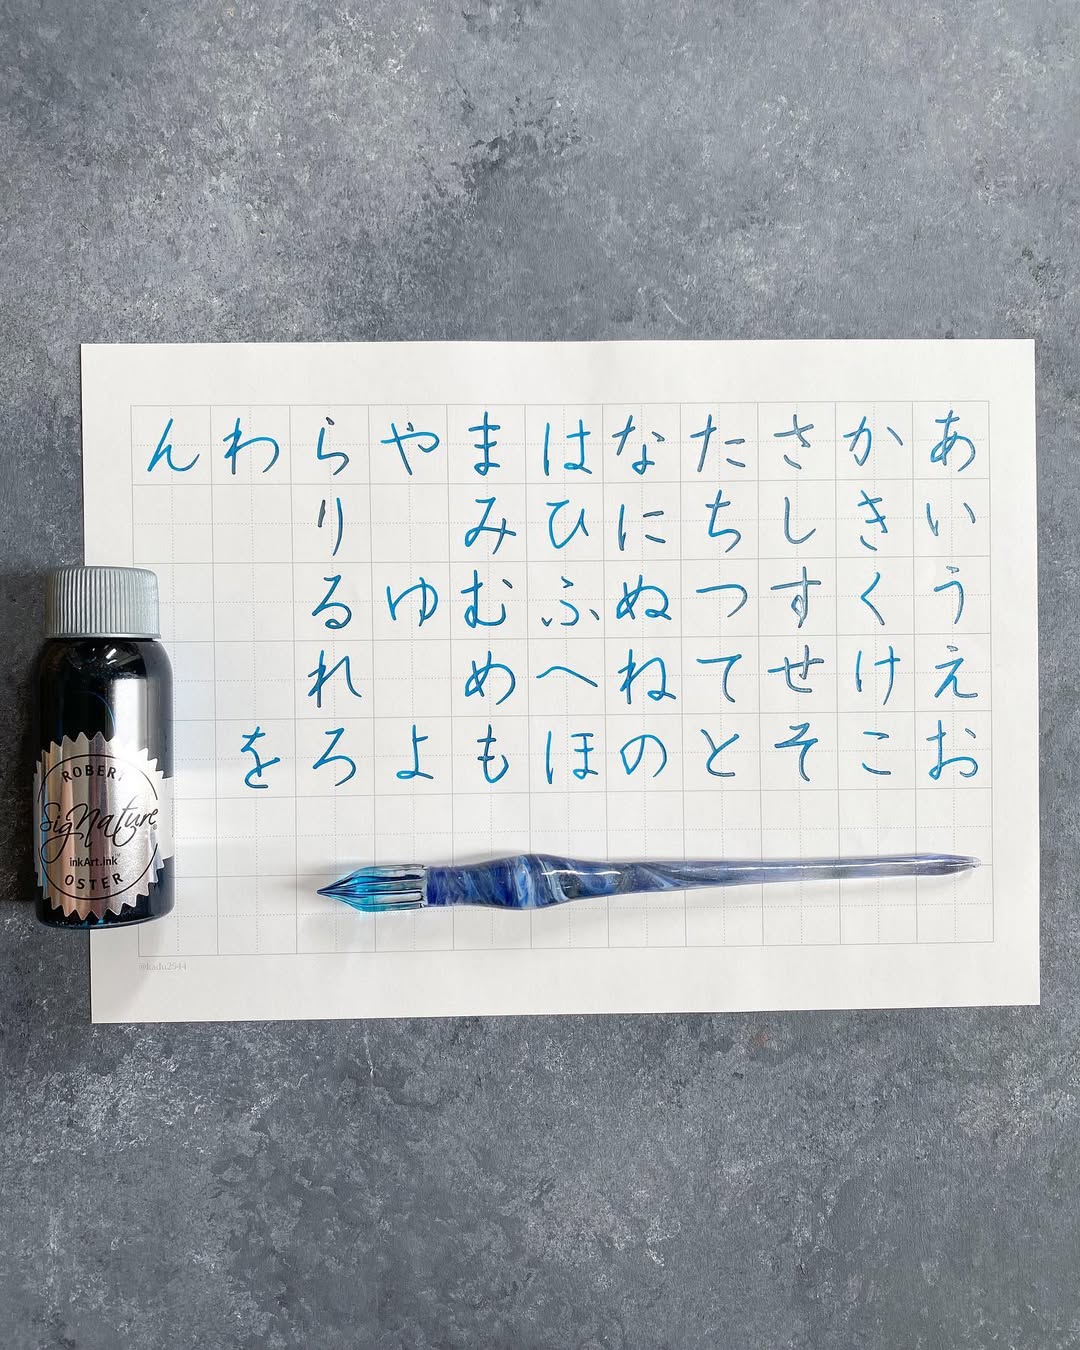 あいうえお
かきくけこ
さしすせそ
たちつてと
なにぬねの
はひふへほ
まみむめも
やゆよ
らりるれろ
わを
ん
ROBERT
SigNature
inkArt.ink™
OSTER
@kadu2544